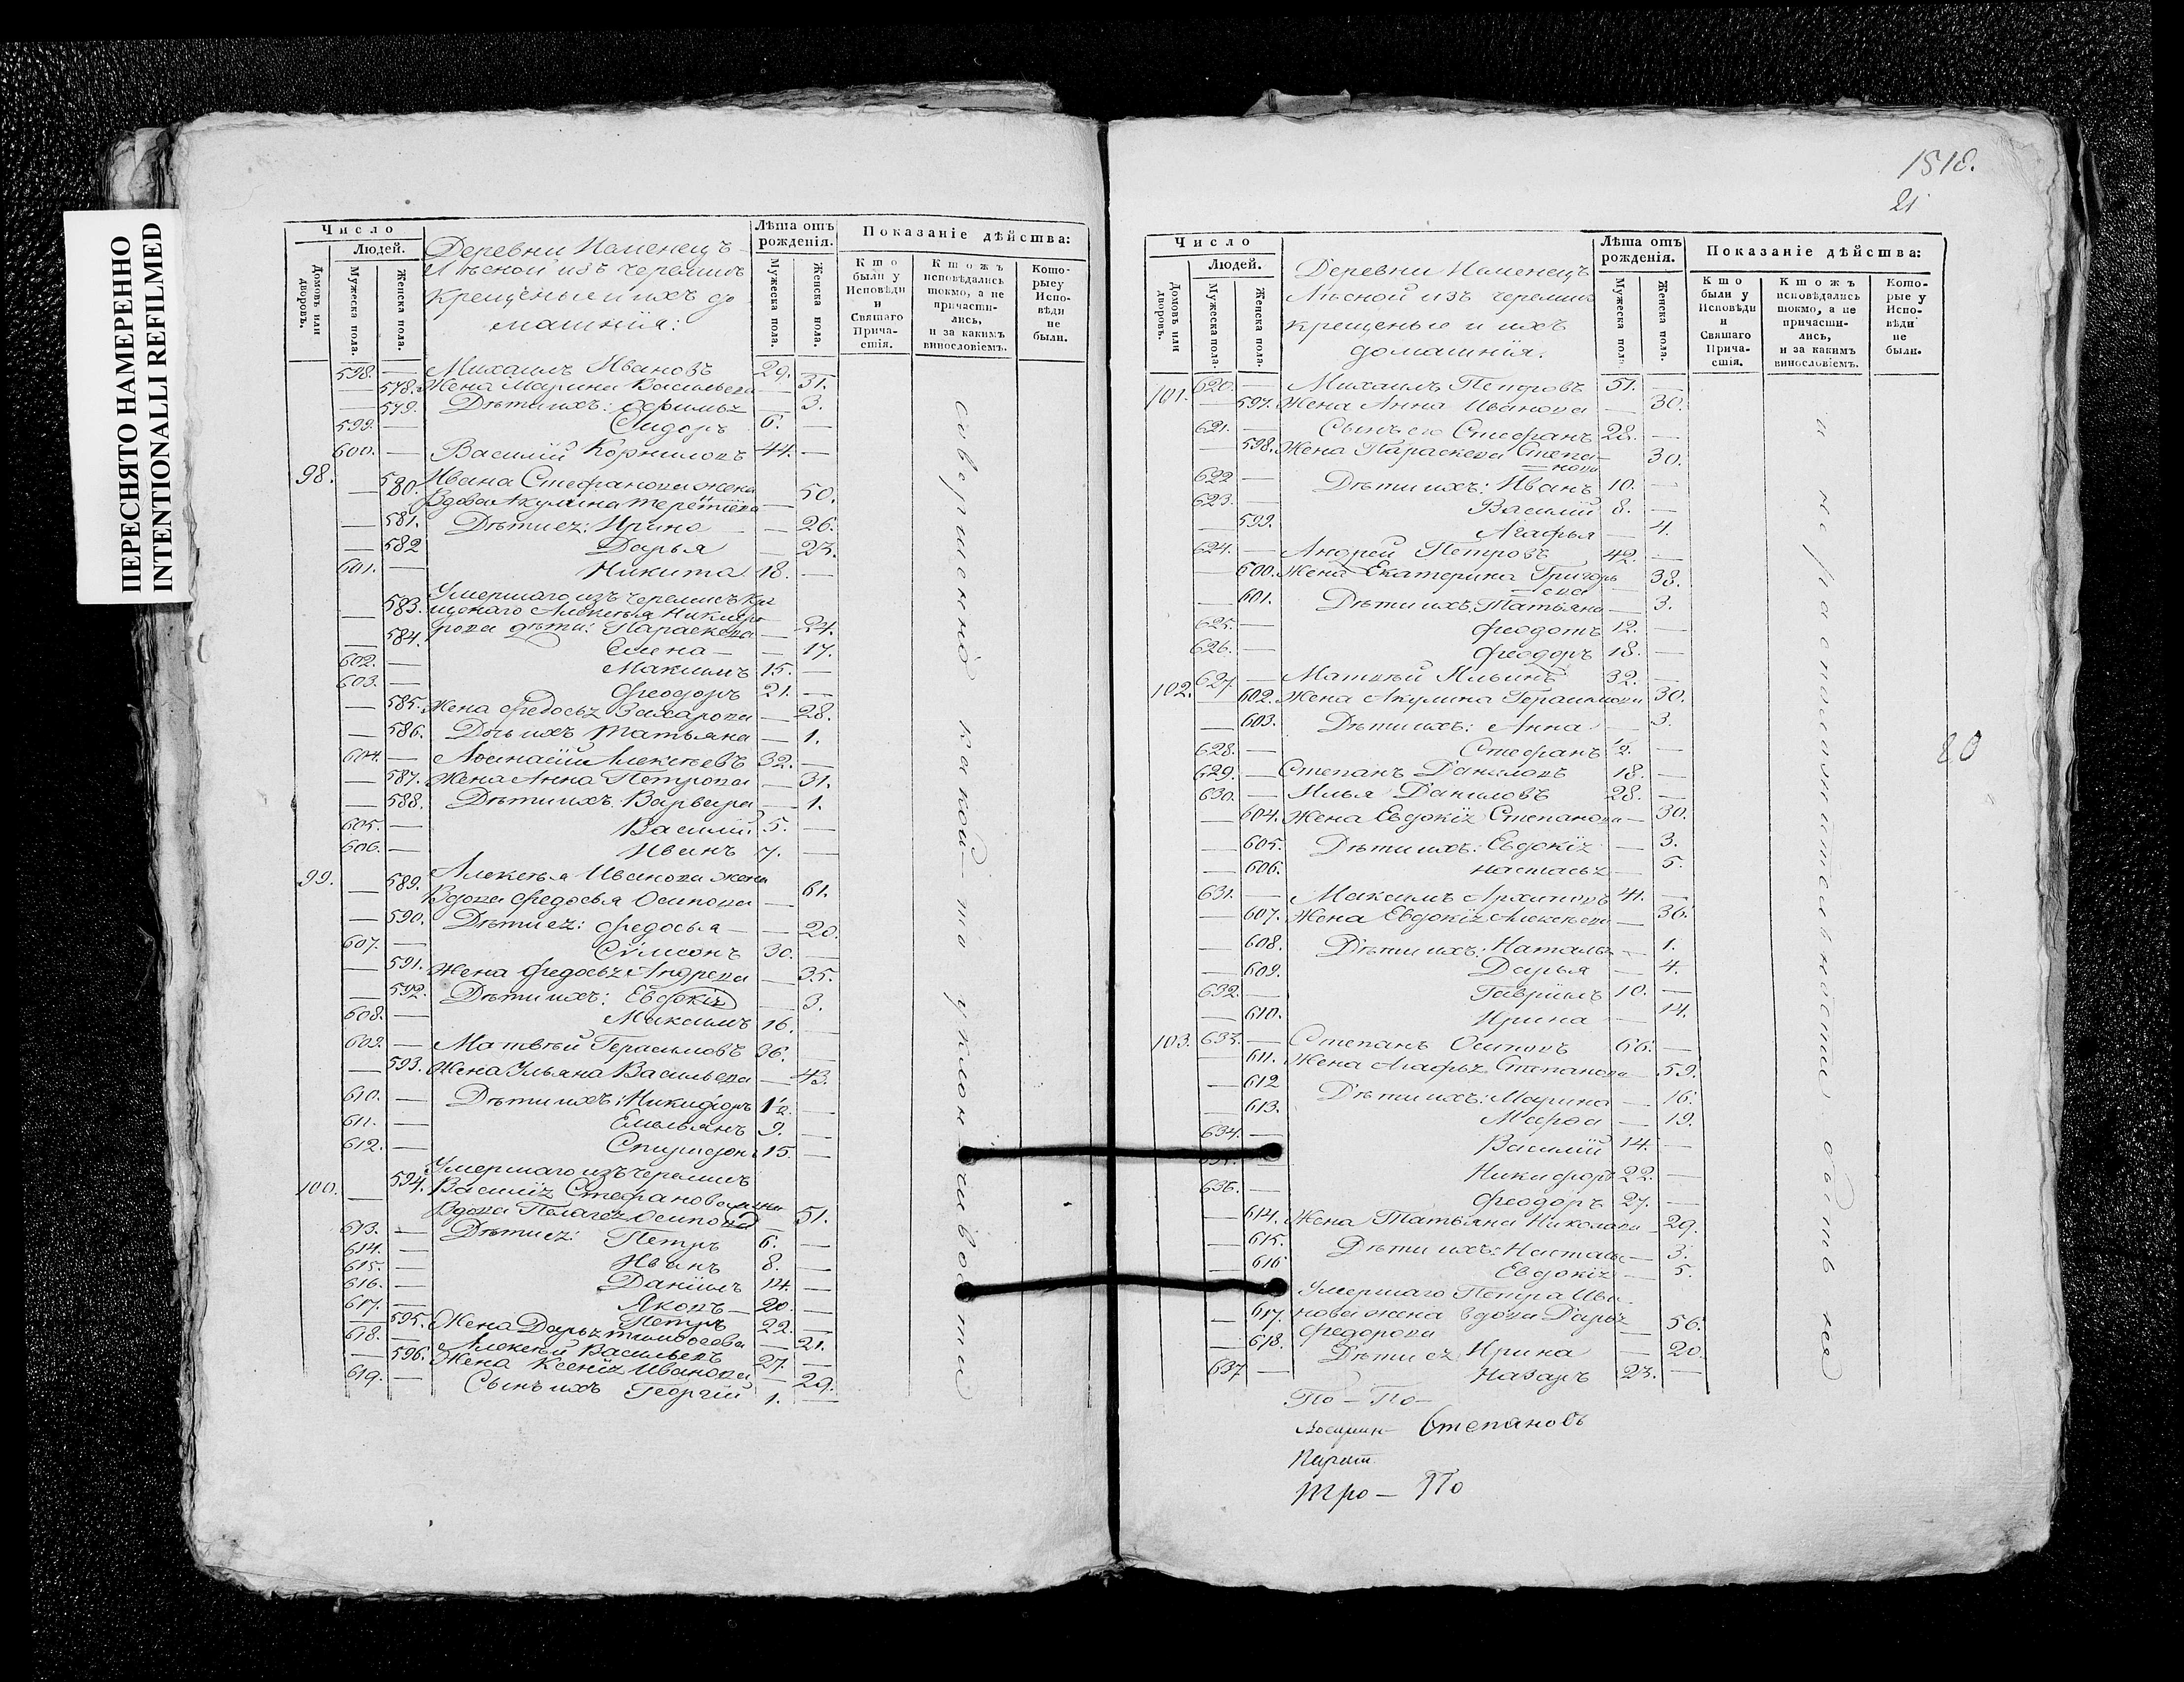 ПЕРЕСНЯТО НАМЕРЕННО
INTENTIONALLI REFILMED
Число
Людей.
Домовъ или дворовъ.
Мужеска пола.
Женска пола.
Деревни
изъ черемисъ
крещеные и ихъ до
машнія:
Лѣта отъ рожденія.
Мужеска пола.
Женска пола.
Показаніе дѣйства:
Кто были у Исповѣди и Святаго Причастія.
Ктожъ исповѣдались токмо, а не причастились, и за какимъ винословіемъ.
Которые у Исповѣди не были.
598. — Михаилъ Ивановъ 29. —
— 578. Жена Марина Васильева — 31.
— 579. Дѣти ихъ: — 3.
599. — Сидоръ 6. —
600. — Василій Корниловъ 44. —
98. — 580. Ивана Стефанова жена
Вдова Акулина Терентiева — 50.
— 581. Дѣти ея: Ирина — 26.
— 582 Дарья — 23.
601. — Никита 18. —
Умершаго изъ черемисъ кре
— 583. щенаго Алексѣя Никифо
рова дѣти: Параскева — 24.
— 584. Елена — 17.
602. — Максимъ 15. —
603. — Феодоръ 21. —
— 585. Жена Федосья Захарова — 28.
— 586. Дочь ихъ Татьяна — 1.
604. — Аѳанасій Алексѣевъ 32. —
— 587. Жена Анна Петрова — 31.
— 588. Дѣти ихъ: Варвара — 1.
605. — Василій 5. —
606. — Иванъ 7. —
99. — 589. Алексѣя Иванова жена
Вдова Федосья Осипова — 61.
— 590. Дѣти ея: Федосья — 20.
607. — Сѵмеонъ 30. —
— 591. Жена Федосья Андреева — 35.
— 592. Дѣти ихъ: Евдокія — 3.
608. — Максимъ 16. —
609. — Матвѣй Герасимовъ 36. —
— 593. Жена Ульяна Васильева — 43.
610. — Дѣти ихъ: Никифоръ 1/2. —
611. — Емельянъ 9. —
612. — Спиридонъ 15. —
Умершаго изъ черемисъ
100. — 594. Василія Стефанова жена
Вдова Пелагея Осипова — 51.
613. — Дѣти ея: Петръ 6. —
614. — Иванъ 8. —
615. — Даніилъ 14. —
616. — Яковъ 20. —
617. — Петръ 22. —
— 595. Жена Дарья Тимоѳеева — 21.
618. — Алексѣй Васильевъ 27. —
— 596. Жена Ксенія Иванова — 29.
619. — Сынъ ихъ Георгій 1. —
совершенно какой-то уклончивости
1818.
21
Число
Людей.
Домовъ или дворовъ.
Мужеска пола.
Женска пола.
Деревни
Лѣсной изъ черемисъ
крещеные и ихъ
домашнія.
Лѣта отъ рожденія.
Мужеска пола.
Женска пола.
Показаніе дѣйства:
Кто были у Исповѣди и Святаго Причастія.
Ктожъ исповѣдались токмо, а не причастились, и за какимъ винословіемъ.
Которые у Исповѣди не были.
101. 620. — Михаилъ Петровъ 51. —
— 597. Жена Анна Иванова — 30.
621. — Сынъ его Стефанъ 28. —
— 598. Жена Параскева Степа-
нова 30.
622 — Дѣти ихъ: Иванъ 10. —
623. — Василій 8. —
— 599. Агафья — 4.
624. — Андрей Петровъ 42. —
— 600. Жена Екатерина Григорь
ева 38.
— 601. Дѣти ихъ: Татьяна — 3.
625. — Феодотъ 12. —
626. — Феодоръ 18. —
102. 627. — Матвѣй Ильинъ 32. —
— 602. Жена Акулина Герасимова 30.
— 603. Дѣти ихъ: Анна — 3.
628. — Стефанъ 1/2. —
629. — Степанъ Даниловъ 18. —
630. — Илья Даниловъ 28. —
— 604. Жена Евдокія Степанова — 30.
— 605. Дѣти ихъ: Евдокія — 3.
— 606. Настасья — 5.
631. — Максимъ Архиповъ 41. —
— 607. Жена Евдокія Алексѣева — 36.
— 608. Дѣти ихъ: Наталья — 1.
— 609. Дарья — 4.
632. — Гавріилъ 10. —
— 610. Ирина — 14.
103. 633. — Степанъ Осиповъ 66. —
— 611. Жена Агафья Степанова — 59.
— 612 Дѣти ихъ: Марина — 16.
— 613. Марѳа — 19.
634. — Василій 14. —
635. — Никифоръ 22. —
636. — Феодоръ 27. —
— 614. Жена Татьяна Николаева — 29.
— 615. Дѣти ихъ: Настасья — 3.
— 616 Евдокія — 5.
Умершаго Петра Ива-
— 617. нова жена вдова Дарья
Федорова — 56.
— 618. Дѣти ея Ирина — 20.
637 — Назаръ 23. —
и не расположительности обѣтъ нея
80
По — По —
Степановъ
Тро — По